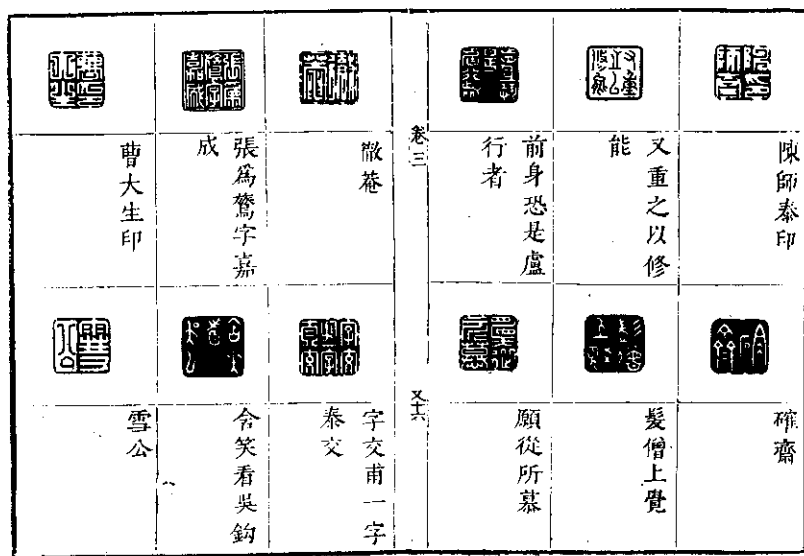 陳師泰印
又重之以修
能
前身恐是盧
行者
確齋
髮僧上覺
願從所慕
卷三
又十六
徹菴
張爲字嘉
成
曹大生印
字交甫一字
泰交
含笑看吳鈎
雪公